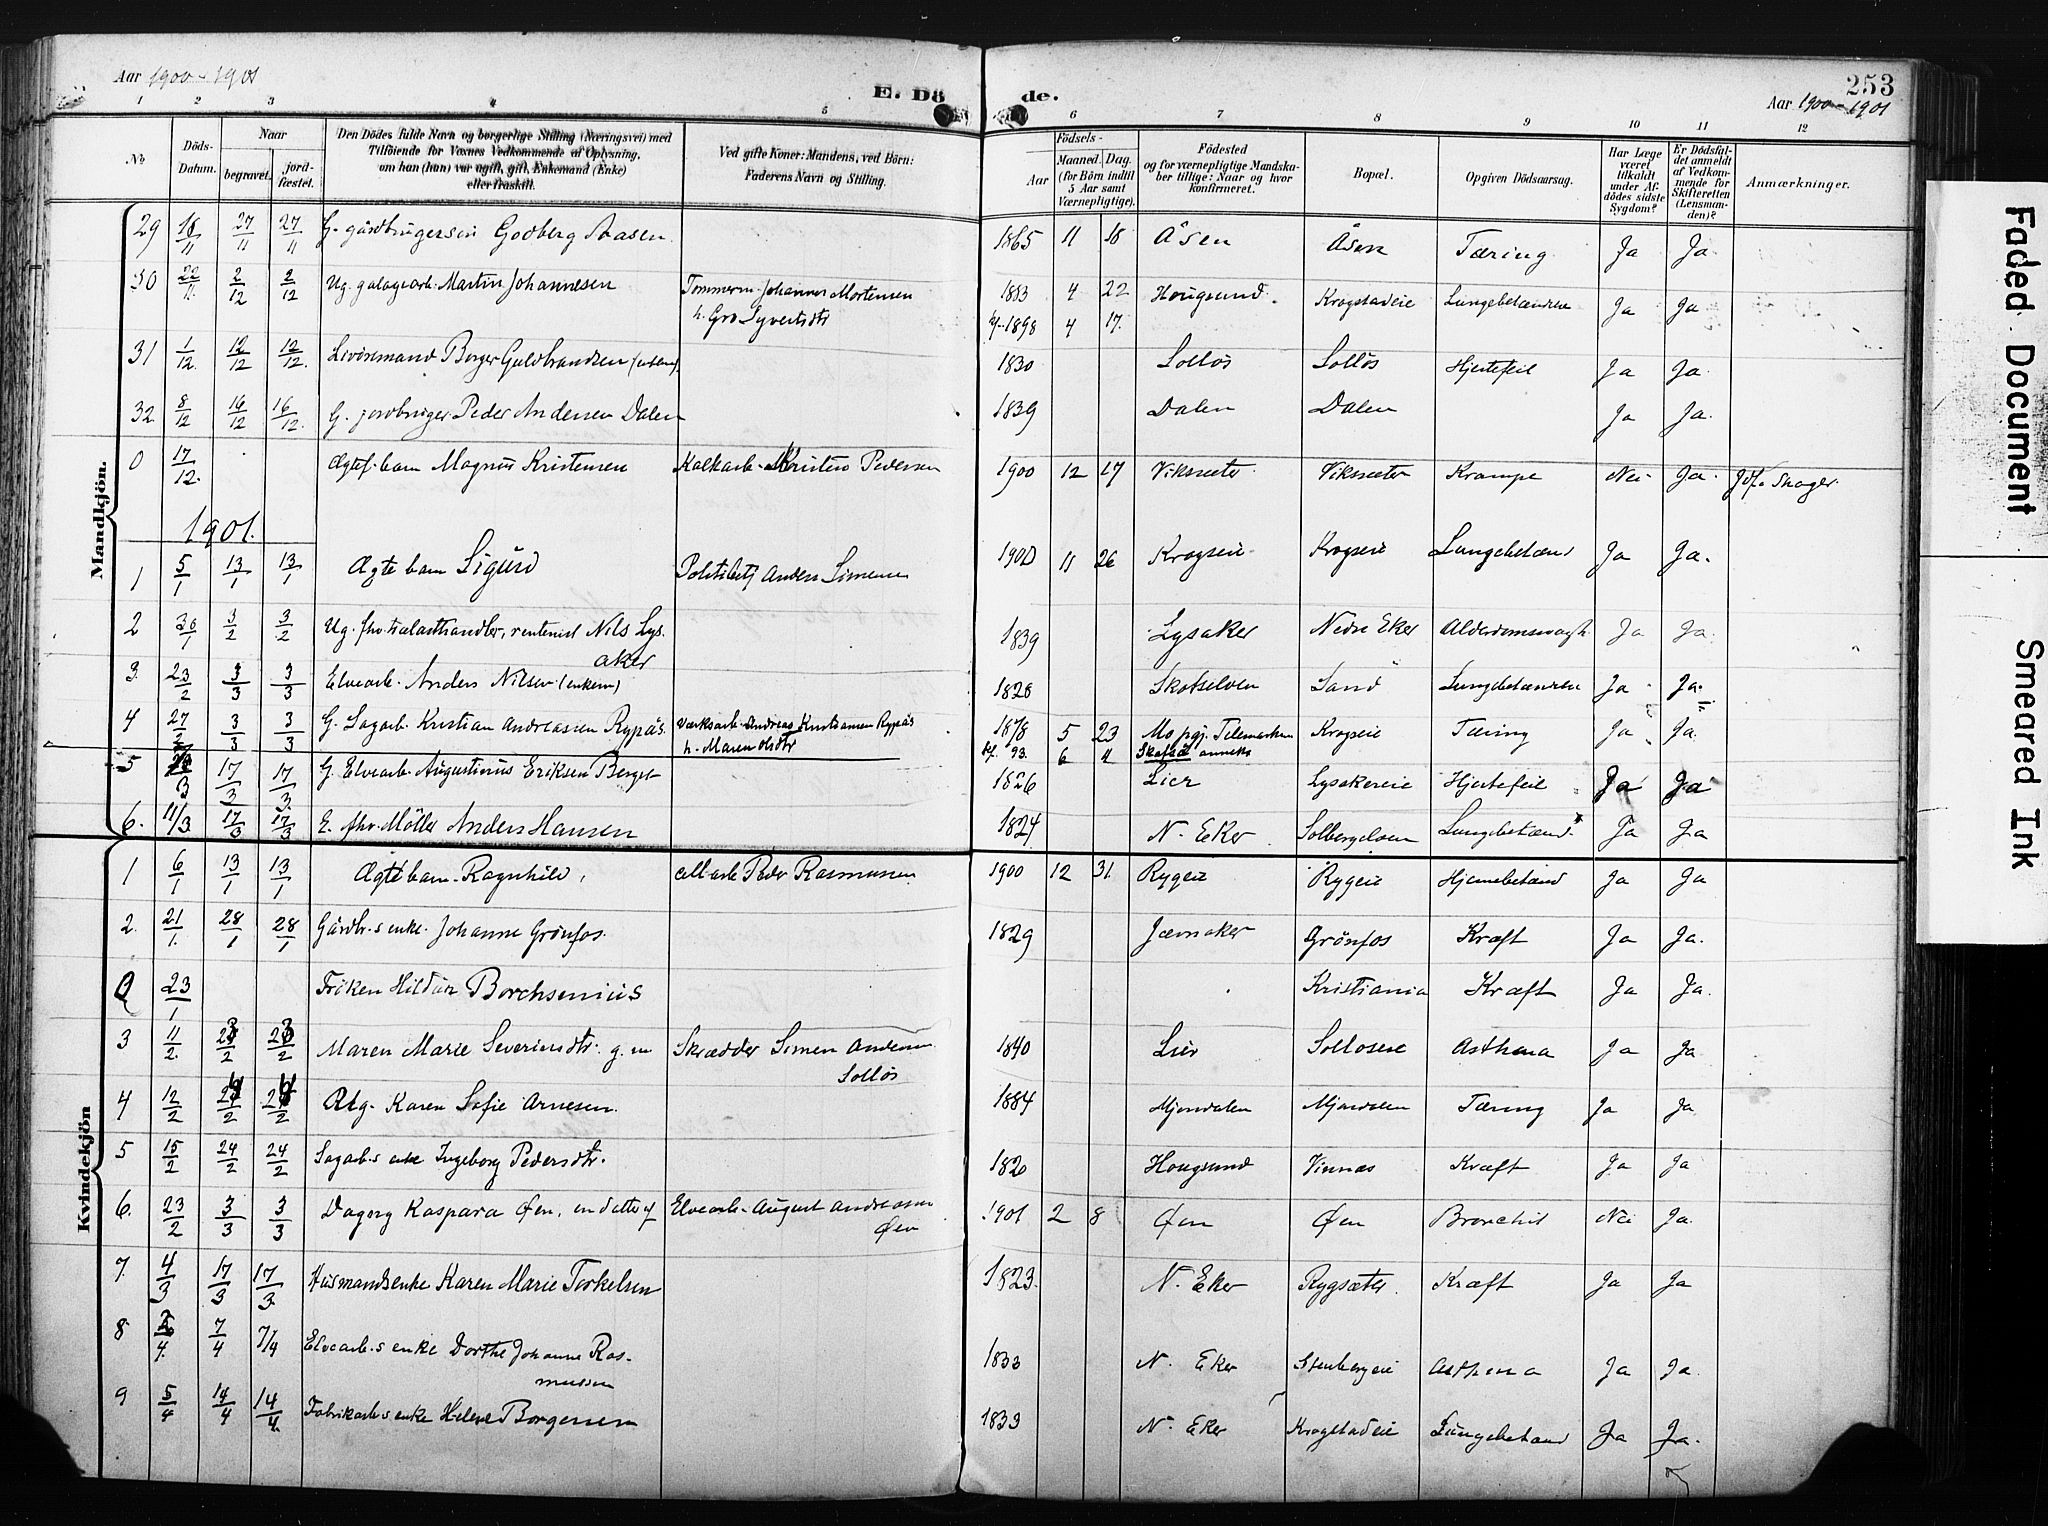 Aar 1900-1901
E. Dö de.
253
Aar 1900-1901
1 2 3 4 5 6 7 8 9 10 11 12
No
Döds-Datum.
Naar
begravet.
jordfæstet.
Den Dödes fulde Navn og borgerlige Stilling (Næringsvei) med
Tilföiende for Voxnes Vedkommende af Oplysning,
om han (hun) var ugift, gift, Enkemand (Enke)
eller fraskilt.
Ved gifte Koner: Mandens, ved Börn:
Faderens Navn og Stilling.
Födsels-
Aar
Maaned. Dag.
(for Börn indtil
5 Aar samt
Værnepligtige).
Födested
og for værnepligtige Mandskaber
tillige: Naar og hvor
konfirmeret.
Bopæl.
Opgiven Dödsaarsag.
Har Læge
været
tilkaldt
under Afdödes
sidste
Sygdom?
Er Dödsfaldet
anmeldt
af Vedkommende
for
Skifteretten
(Lensmanden)?
Anmærkninger.
Mandkjön.
29 18/11 27/11 27/11 G. gårdbrugersön Godberg Aasen 1865 11 18 Åsen Åsen Tæring Ja Ja.
30 22/11 2/12 2/12 Ug. Martin Johannesen Tömmerm. Johannes Mortensen 1883 4 22 Hougsund. Krogstadeie Lungebetændelse Ja Ja
h. Gro Syvertsdtr kf. 1898 4 17.
31 1/12 12/12 12/12 Livöremand Borger Guldbrandsen (enkem). 1830 Sollös Sollös Hjertefeil Ja Ja
32 8/12 16/12 16/12 G. jordbruger Peder Andersen Dalen 1839 Dalen Dalen Ja Ja.
0 17/12 Ægtef. barn Magnus Kristensen Kalkarb. Kristen Pedersen 1900 12 17 Viksæter Viksæter Krampe Nei Ja Jdf. Skoger.
1901.
1 5/1 13/1 13/1 Ægte barn Sigurd Politibetj Anders Simensen 1900 11 26 Krogseie Krogseie Lungebetænd Ja Ja.
2 30/1 3/2 3/2 Ug. fhv. trælasthandler, rentenist Nils Lysaker 1839 Lysaker Nedre Eker Alderdomssvagh. Ja Ja.
3. 23/2 3/3 3/3 Elvearb. Anders Nilsen (enkem) 1826 Skotselven Sand Lungebetændelse Ja Ja.
4 27/2 3/3 3/3 G. Sagarb. Kristian Andreassen Rypås. Værksarb. Andreas Kristiansen Rypås 1878 5 23 Mo pgj. Telemarken Krogseie Tæring Ja Ja.
h. Maren Olsdtr kf. 93. 6 11 Skafså anneks
5 17/3 17/3. G. Elvearb. Augustinus Eriksen Berget 1826 Lier Lysakereie Hjertefeil Ja Ja
6. 11/3 17/3 17/3 E. fhv. Möller Anders Hansen 1824 N. Eker Solbergelven Lungebetænd. Ja Ja
Kvindekjön
1 6/1 13/1 13/1 Ægte barn Ragnhild Peder Rasmussen 1900 12 31. Rygeie Rygeie Hjernebetænd Ja Ja
2. 21/1. 28/1 28/1 Gårdbr.s enke Johanne Grönfos. 1829 Jævnaker Grönfos Kræft Ja Ja.
0 23/1 Fröken Hildur Borchsenius Kristiania Kræft Ja Ja.
3 11/2. 23/2 23/2 Maren Marie Severinsdtr. g. m Skrædder Simen Andersen 1840 Lier Solloseie Asthma Ja Ja
Sollös
4 12/2 24/2 24/2 Ug. Karen Sofie Arnesen. 1884 Mjøndalen Mjøndalen Tæring Ja Ja
5 15/2 24/2 24/2 Sagarb.s enke Ingeborg Pedersdtr. 1820 Hougsund Vinnæs Kræft Ja Ja
6. 23/2 3/3 3/3 Dagny Kaspara Øen, en datter af Elvearb. August Andreassen 1901 2 8 Øen Øen Bronchit Nei Ja.
Øen
7. 4/3 17/3 17/3. Husmandsenke Karen Marie Torkelsen 1823. N. Eker Rygsæter Kræft Ja Ja
8 2/4. 7/4 7/4 Elvearb.s enke Dorthe Johanne Rasmussen 1833 N. Eker Stenbergeie Asthma Ja Ja.
9 5/4 14/4 14/4. Fabrikarb.s enke Helene Borgersen 1833 N. Eker Krogstadeie Lungebetænd Ja Ja.
Faded Document
Smeared Ink